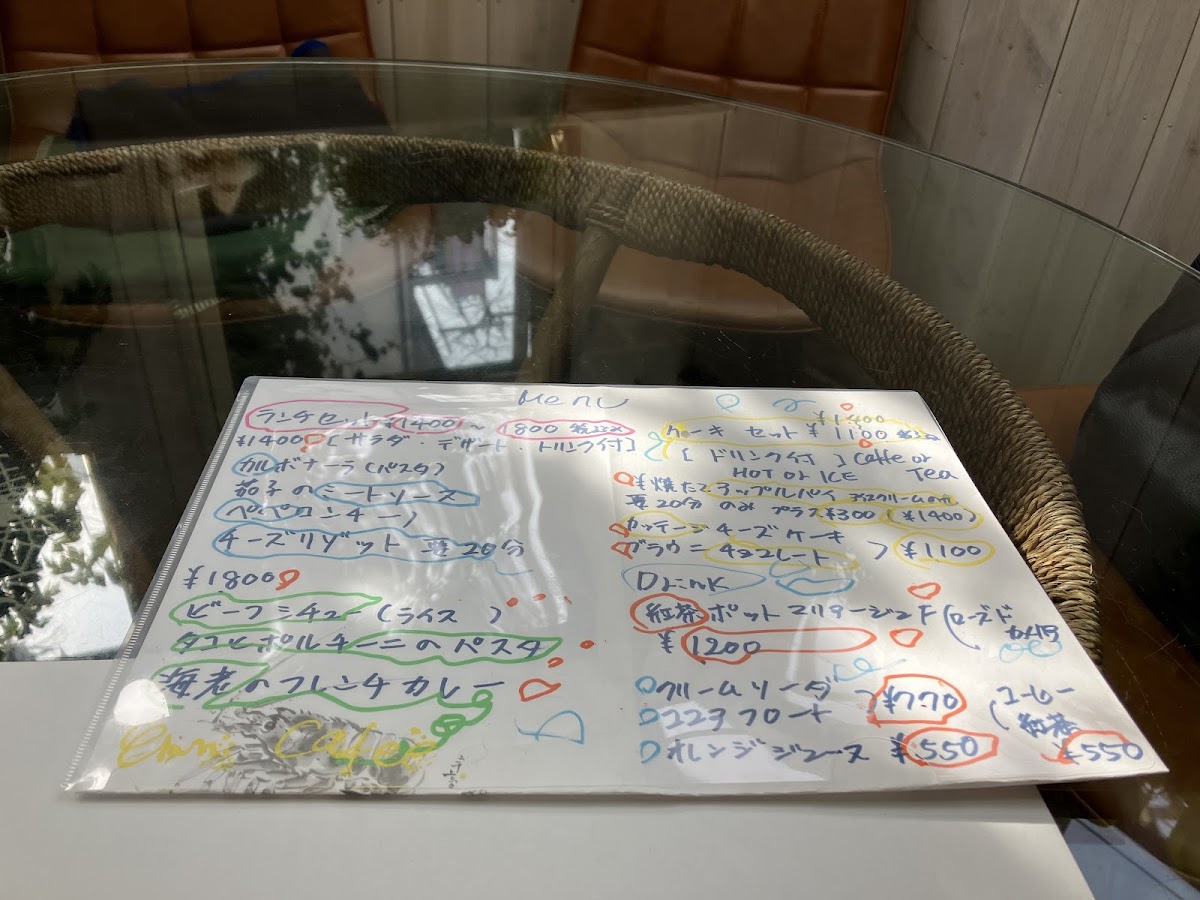 Menu
ランチセット ¥1400 ~ 1800 税込
¥1400 [サラダ・デザート・ドリンク付]
カルボナーラ(パスタ)
茄子のミートソース
ペペロンチーノ
チーズリゾット 要20分
¥1800
ビーフシチュー(ライス)
タコとポルチーニのパスタ
海老のフレンチカレー
Cafe
ケーキ セット ¥1100 税込
[ドリンク付] Caffe or Tea
HOT or ICE
焼たてアップルパイ アイスクリームのせ
要20分 のみ プラス¥300 (¥1400)
カッテージチーズケーキ
ブラウニー チョコレート > ¥1100
Drink
紅茶ポット マリアージュF (ローズド
¥1200
クリームソーダ > ¥770
ココアフロート
オレンジジュース ¥550
(コーヒー
紅茶
¥550